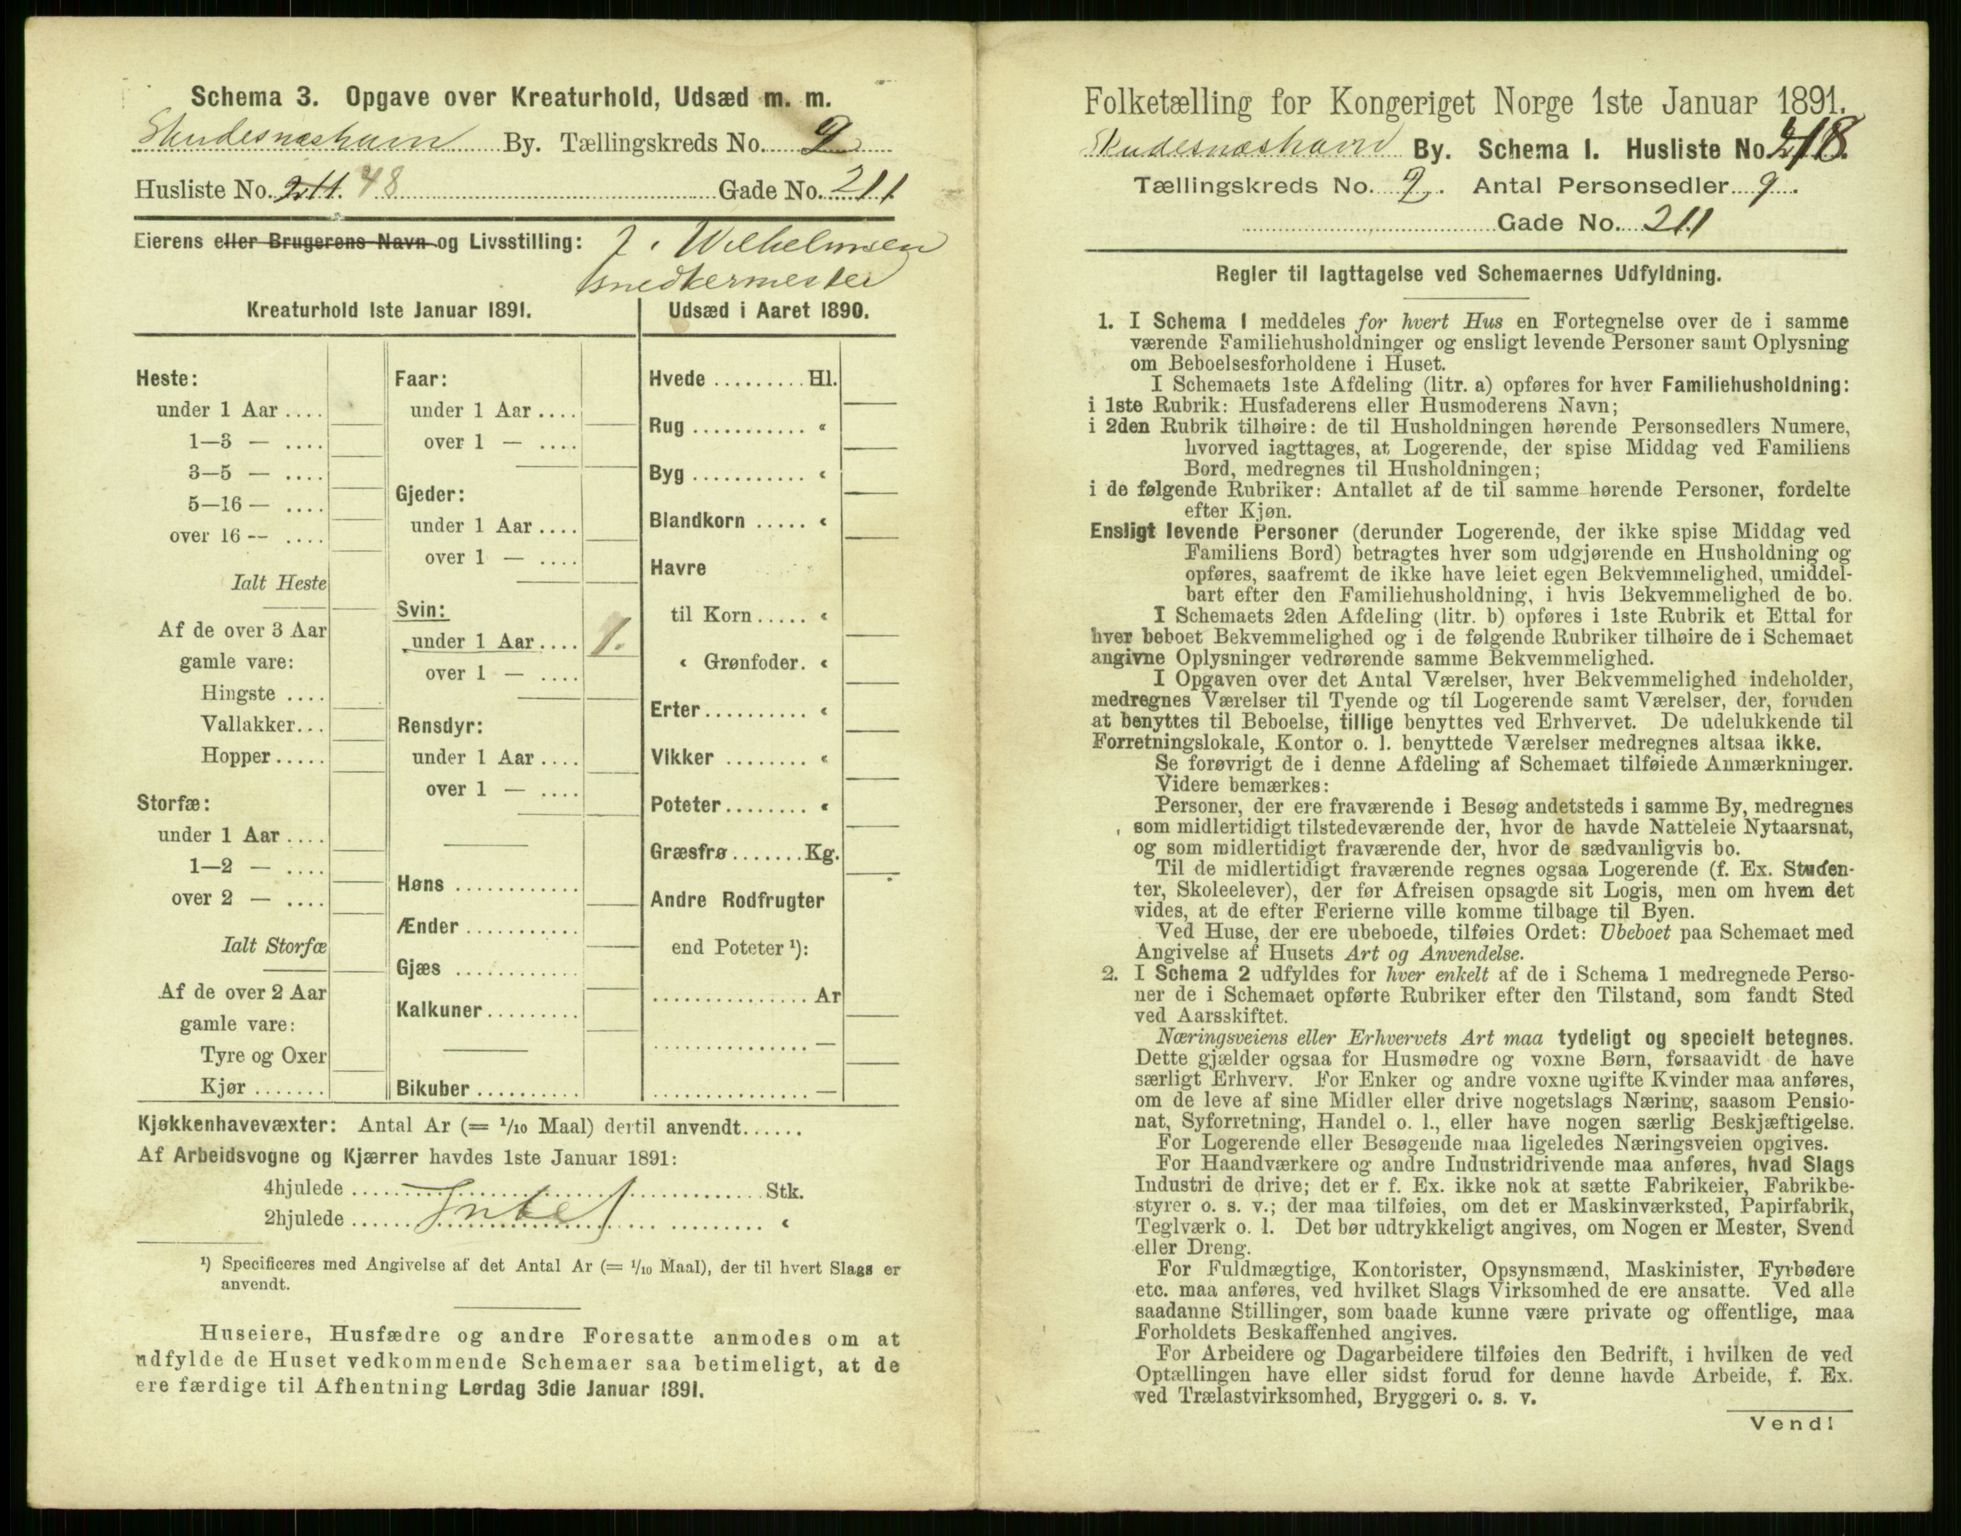 Schema 3. Opgave over Kreaturhold, Udsæd m. m.
Skudesneshavn By. Tællingskreds No. 2
Husliste No. 211. 48 Gade No. 211
Eierens eller Brugerens Navn og Livsstilling: J. Wilhelmsen
snedkermester
Kreaturhold 1ste Januar 1891.
Heste:
under 1 Aar ....
1—3 — ....
3—5 — ....
5—16 — ....
over 16 — ....
Ialt Heste
Af de over 3 Aar
gamle vare:
Hingste ....
Vallakker...
Hopper.....
Storfæ:
under 1 Aar ....
1—2 — ....
over 2 — ....
Ialt Storfæ
Af de over 2 Aar
gamle vare:
Tyre og Oxer
Kjør .......
Faar:
under 1 Aar ....
over 1 — ....
Gjeder:
under 1 Aar ....
over 1 — ....
Svin:
under 1 Aar .... 1.
over 1 — ....
Rensdyr:
under 1 Aar ....
over 1 — ....
Høns ...........
Ænder ..........
Gjæs ...........
Kalkuner........
Bikuber .........
Udsæd i Aaret 1890.
Hvede ......... Hl.
Rug ........... «
Byg ........... «
Blandkorn ..... «
Havre
til Korn ..... «
« Grønfoder. «
Erter.......... «
Vikker ........ «
Poteter........ «
Græsfrø ....... Kg.
Andre Rodfrugter
end Poteter ¹):
............... Ar
............... —
............... —
Kjøkkenhavevæxter: Antal Ar (= 1/10 Maal) dertil anvendt......
Af Arbeidsvogne og Kjærrer havdes 1ste Januar 1891:
4hjulede ........ Stk.
2hjulede ........ Intet «
¹) Specificeres med Angivelse af det Antal Ar (= 1/10 Maal), der til hvert Slags er
anvendt.
Huseiere, Husfædre og andre Foresatte anmodes om at
udfylde de Huset vedkommende Schemaer saa betimeligt, at de
ere færdige til Afhentning Lørdag 3die Januar 1891.
Folketælling for Kongeriget Norge 1ste Januar 1891.
Skudesnæshavn By. Schema I. Husliste No. 48.
Tællingskreds No. 2. Antal Personsedler 9.
Gade No. 211
Regler til Iagttagelse ved Schemaernes Udfyldning.
1. I Schema 1 meddeles for hvert Hus en Fortegnelse over de i samme
værende Familiehusholdninger og ensligt levende Personer samt Oplysning
om Beboelsesforholdene i Huset.
I Schemaets 1ste Afdeling (litr. a) opføres for hver Familiehusholdning:
i 1ste Rubrik: Husfaderens eller Husmoderens Navn;
i 2den Rubrik tilhøire: de til Husholdningen hørende Personsedlers Numere,
hvorved iagttages, at Logerende, der spise Middag ved Familiens
Bord, medregnes til Husholdningen;
i de følgende Rubriker: Antallet af de til samme hørende Personer, fordelte
efter Kjøn.
Ensligt levende Personer (derunder Logerende, der ikke spise Middag ved
Familiens Bord) betragtes hver som udgjørende en Husholdning og
opføres, saafremt de ikke have leiet egen Bekvemmelighed, umiddel-
bart efter den Familiehusholdning, i hvis Bekvemmelighed de bo.
I Schemaets 2den Afdeling (litr. b) opføres i 1ste Rubrik et Ettal for
hver beboet Bekvemmelighed og i de følgende Rubriker tilhøire de i Schemaet
angivne Oplysninger vedrørende samme Bekvemmelighed.
I Opgaven over det Antal Værelser, hver Bekvemmelighed indeholder,
medregnes Værelser til Tyende og til Logerende samt Værelser, der, foruden
at benyttes til Beboelse, tillige benyttes ved Erhvervet. De udelukkende til
Forretningslokale, Kontor o. l. benyttede Værelser medregnes altsaa ikke.
Se forøvrigt de i denne Afdeling af Schemaet tilføiede Anmærkninger.
Videre bemærkes:
Personer, der ere fraværende i Besøg andetsteds i samme By, medregnes
som midlertidigt tilstedeværende der, hvor de havde Natteleie Nytaarsnat,
og som midlertidigt fraværende der, hvor de sædvanligvis bo.
Til de midlertidigt fraværende regnes ogsaa Logerende (f. Ex. Studen-
ter, Skoleelever), der før Afreisen opsagde sit Logis, men om hvem det
vides, at de efter Ferierne ville komme tilbage til Byen.
Ved Huse, der ere ubeboede, tilføies Ordet: Ubeboet paa Schemaet med
Angivelse af Husets Art og Anvendelse.
2. I Schema 2 udfyldes for hver enkelt af de i Schema 1 medregnede Perso-
ner de i Schemaet opførte Rubriker efter den Tilstand, som fandt Sted
ved Aarsskiftet.
Næringsveiens eller Erhvervets Art maa tydeligt og specielt betegnes.
Dette gjælder ogsaa for Husmødre og voxne Børn, forsaavidt de have
særligt Erhverv. For Enker og andre voxne ugifte Kvinder maa anføres,
om de leve af sine Midler eller drive nogetslags Næring, saasom Pensio-
nat, Syforretning, Handel o. l., eller have nogen særlig Beskjæftigelse.
For Logerende eller Besøgende maa ligeledes Næringsveien opgives.
For Haandværkere og andre Industridrivende maa anføres, hvad Slags
Industri de drive; det er f. Ex. ikke nok at sætte Fabrikeier, Fabrikbe-
styrer o. s. v.; der maa tilføies, om det er Maskinværksted, Papirfabrik,
Teglværk o. l. Det bør udtrykkeligt angives, om Nogen er Mester, Svend
eller Dreng.
For Fuldmægtige, Kontorister, Opsynsmænd, Maskinister, Fyrbødere
etc. maa anføres, ved hvilket Slags Virksomhed de ere ansatte. Ved alle
saadanne Stillinger, som baade kunne være private og offentlige, maa
Forholdets Beskaffenhed angives.
For Arbeidere og Dagarbeidere tilføies den Bedrift, i hvilken de ved
Optællingen have eller sidst forud for denne havde Arbeide, f. Ex.
ved Trælastvirksomhed, Bryggeri o. s. v.
Vend!